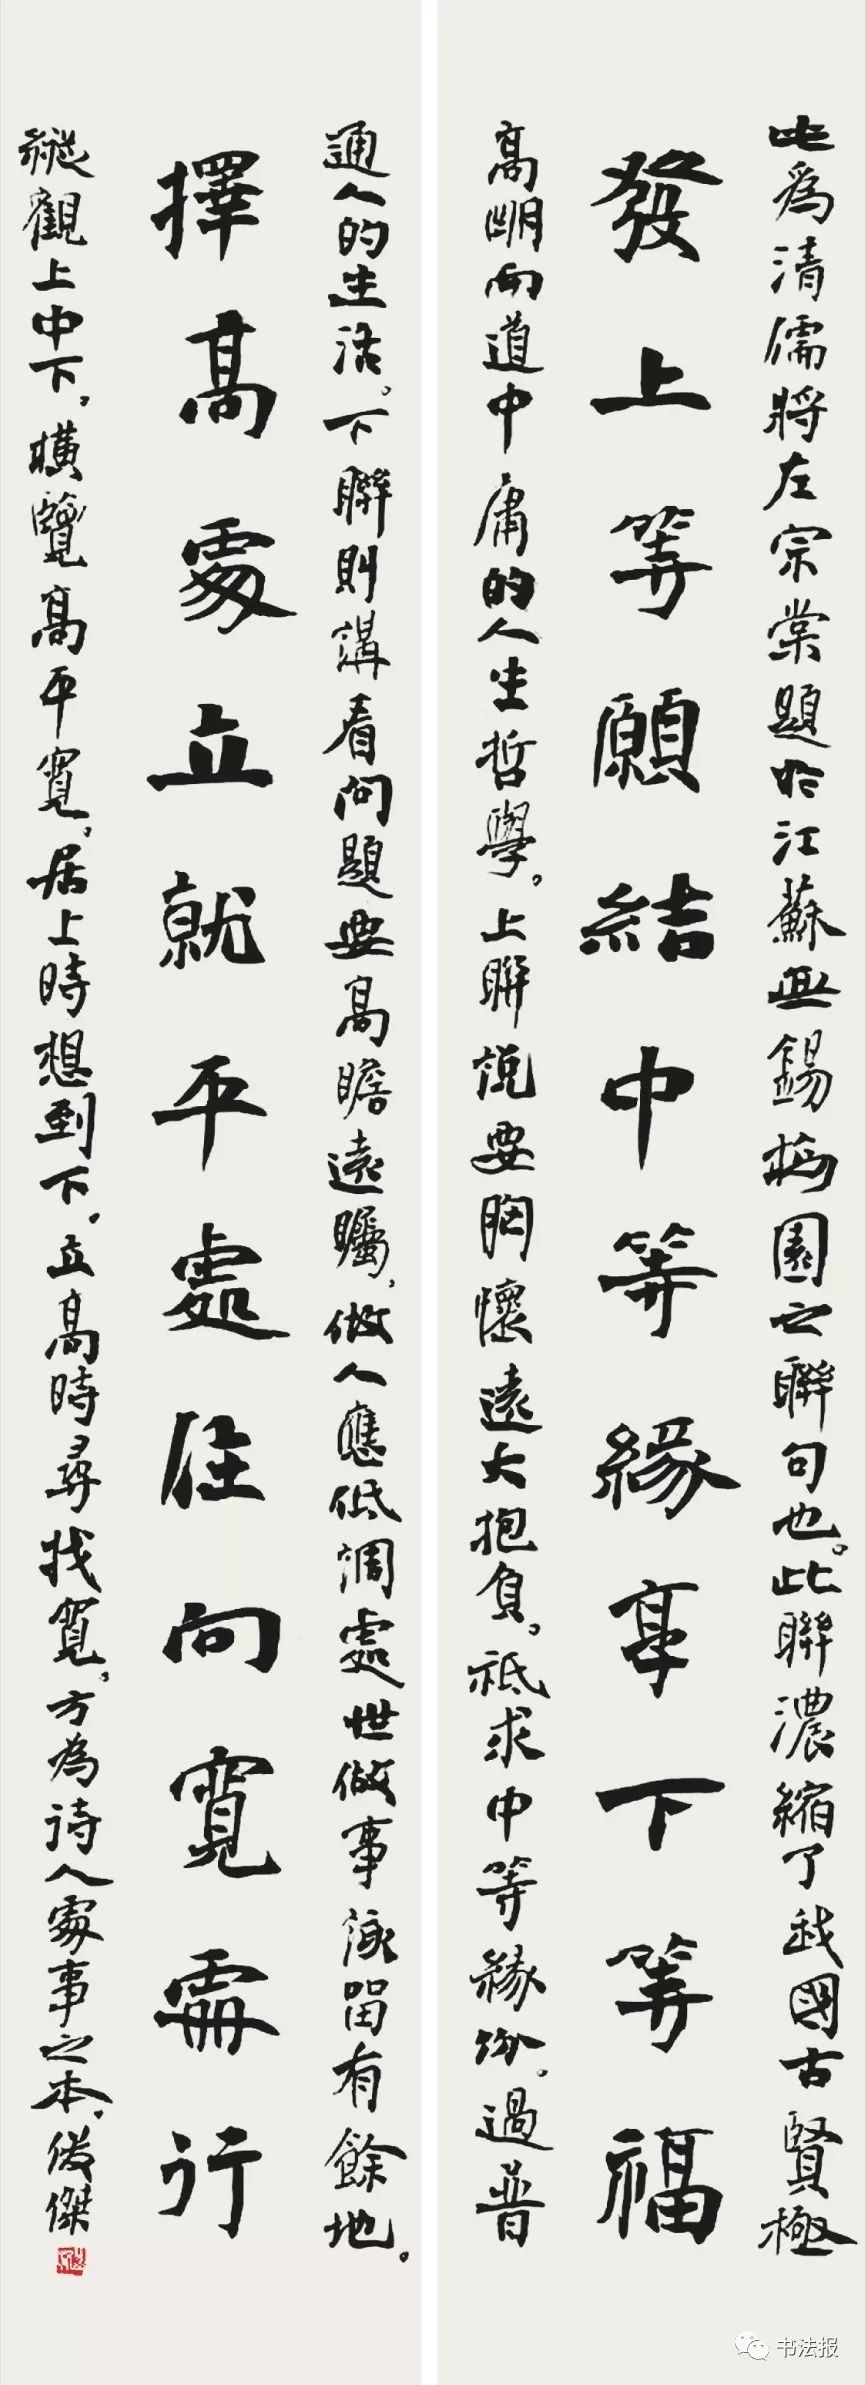 此為清儒將左宗棠題於江蘇無錫梅園之聯句也。此聯濃縮了我國古賢極
發上等願結中等緣享下等福
高明而道中庸的人生哲學。上聯說要胸懷遠大抱負。祗求中等緣份。過普
通人的生活。下聯則講看問題要高瞻遠矚。做人應低調處世做事須留有餘地。
擇高處立就平處住向寬處行
縱觀上中下。橫覽高平寬。居上時想到下。立高時尋找寬。方為詩人處事之本。俊傑
书法报